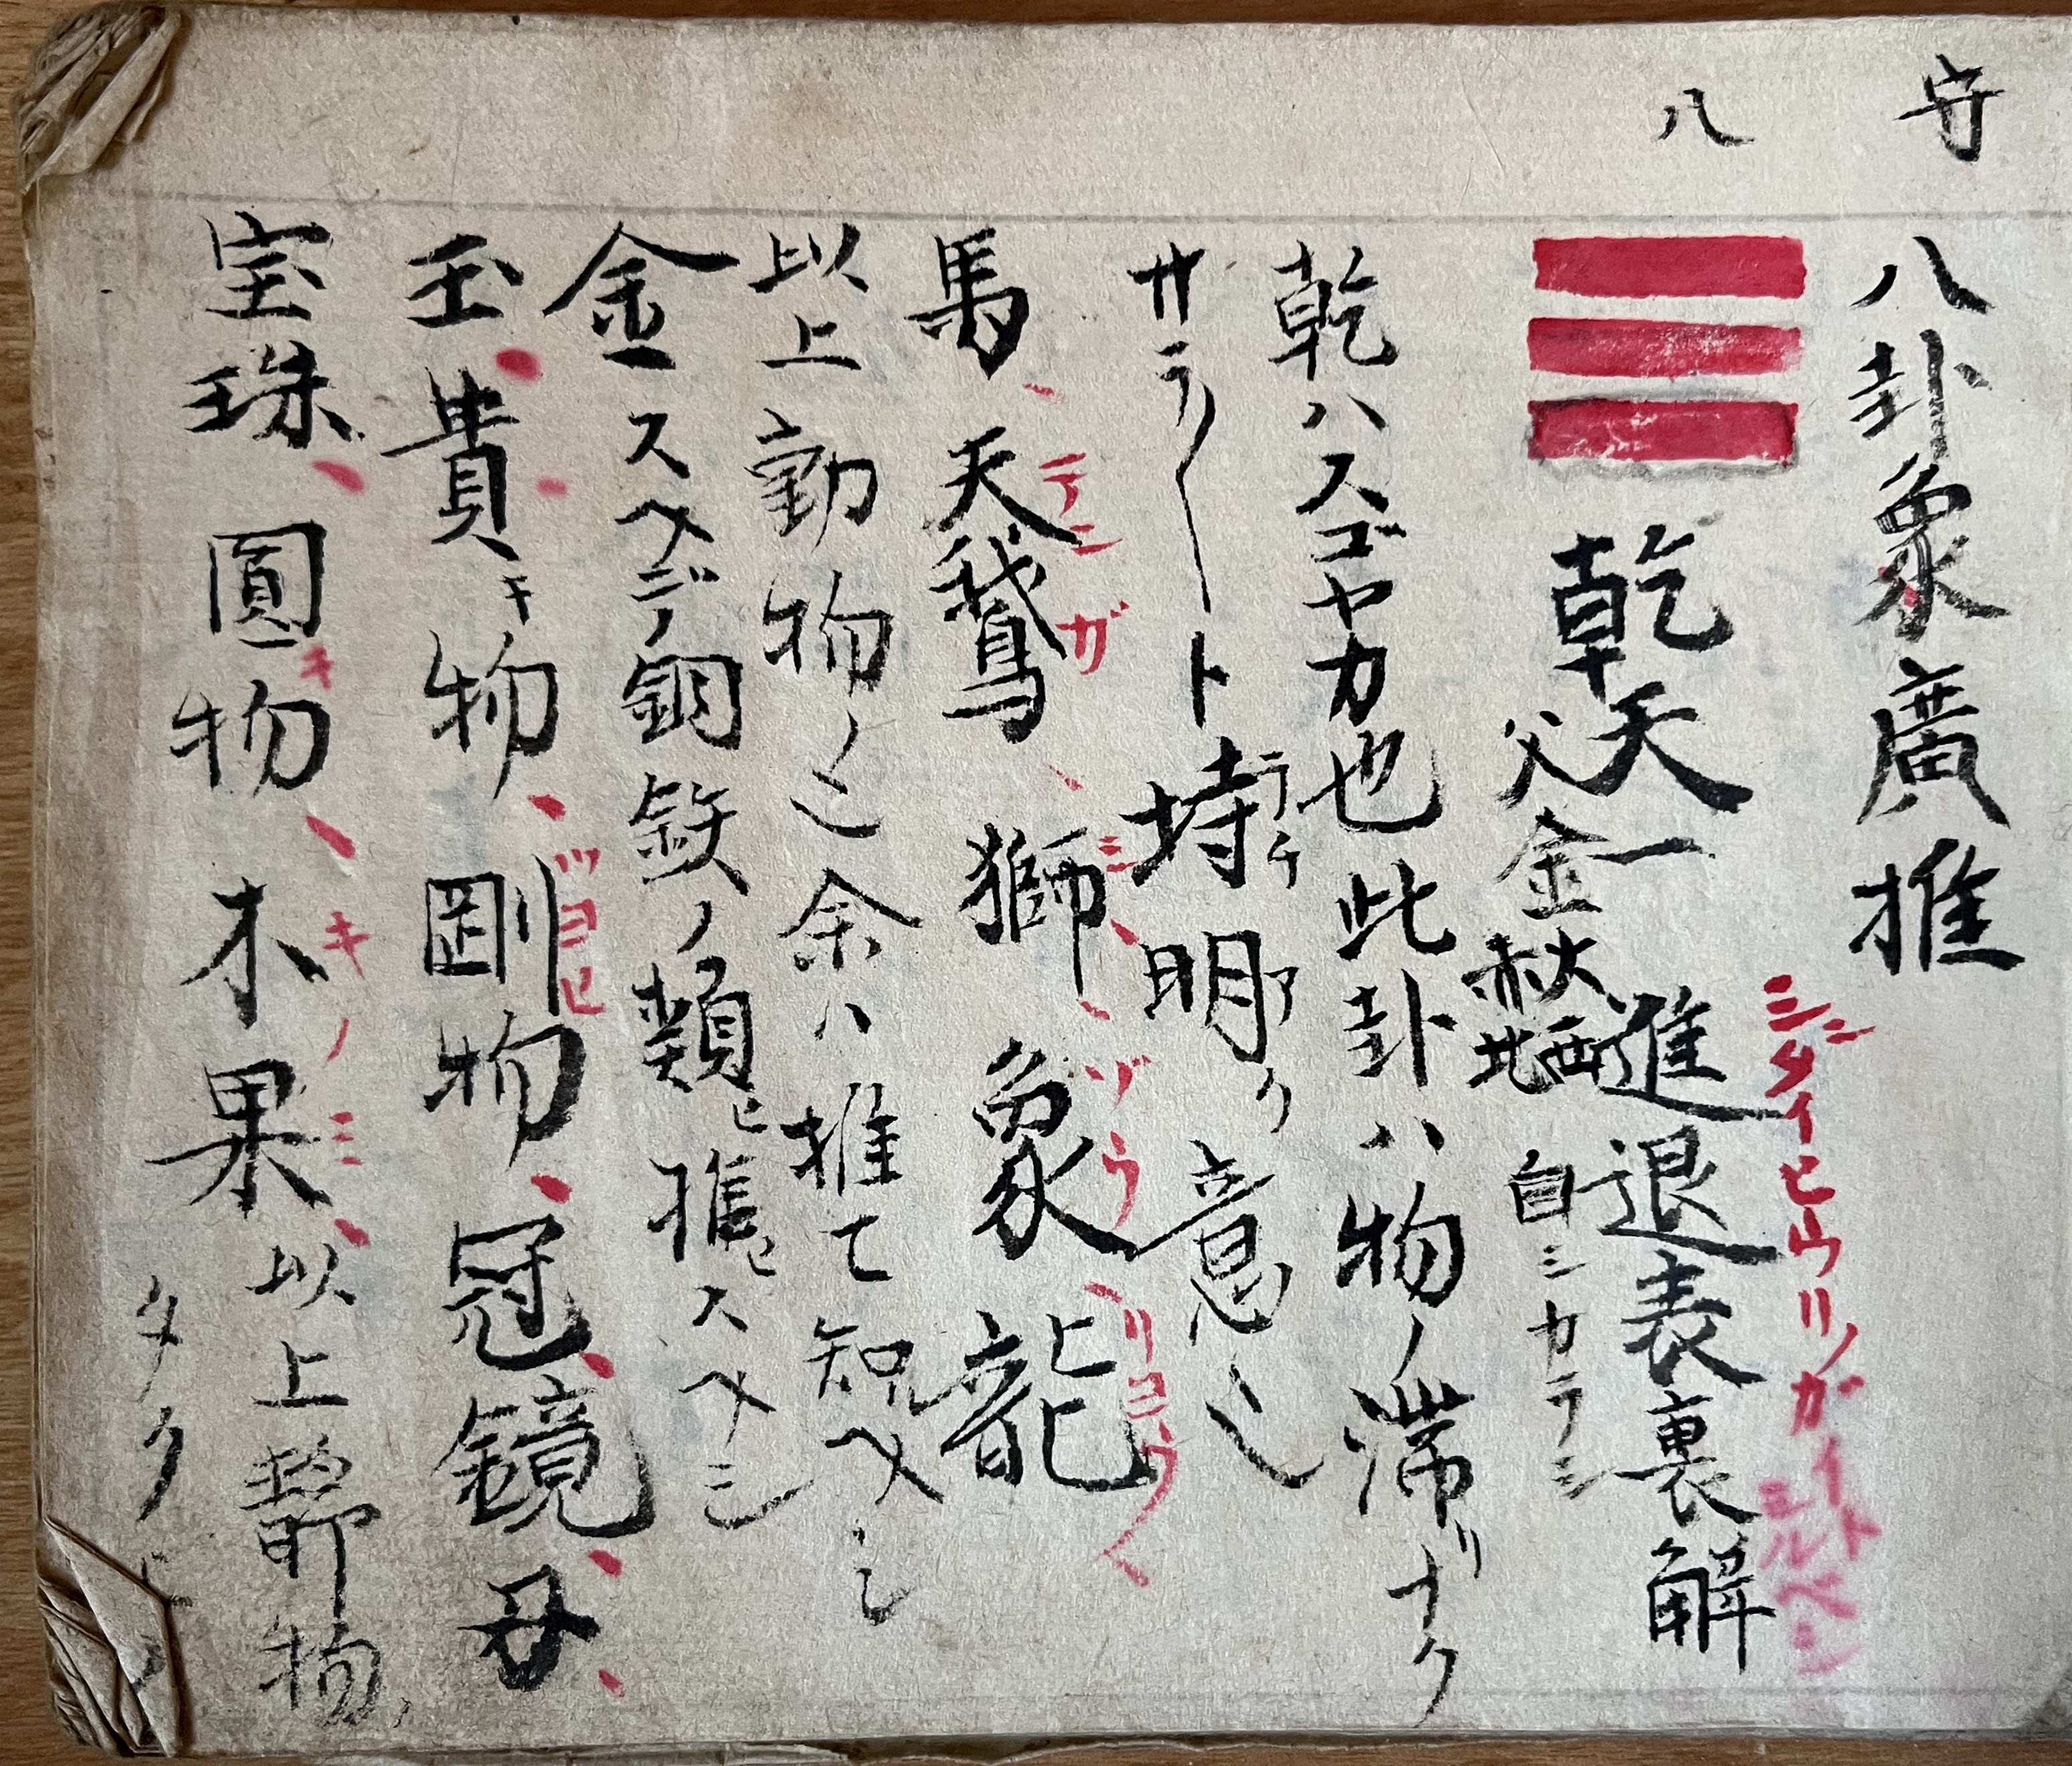 守
八
八卦象廣推
乾天一進退表裏解
シンタイヒウリノガイトシルベシ
父金秋大赤西北 自シカラシ
乾ハスゴヤカ也此卦ハ物ノ滞リナク
サラ〳〵ト埒明ク意シ
ラチ ア
馬、天鵝、獅、象、龍
テンガ シ ゾウ リヨウ
以上動物ノ 余ハ推て知ヘシ
金スベテノ銅鉄ノ類ヒ推 スヘシ
玉、貴キ物、剛物、冠、鏡、母、
ツヨキ
宝珠、圓キ物、木果、以上静物、
キノミ
タク